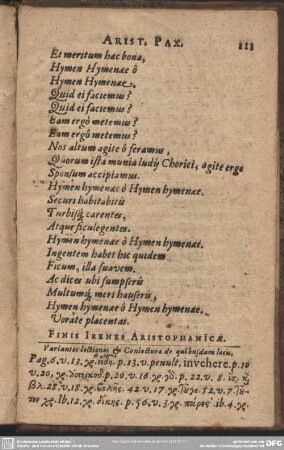 ARIST. PAX. 111
Et meritum hac bona,
Hymen Hymenae ô
Hymen Hymenae.
Quid ei faciemus?
Quid ei faciemus?
Eam ergò metemus?
Eam ergò metemus?
Nos altum agite ô feramus,
Quorum ista munia ludij Chorici, agite ergo
Sponsum accipiamus.
Hymen hymenae ò Hymen hymenae.
Securi habitabitis
Turbisq́; carentes,
Atque ficulegentes.
Hymen hymenae ò Hymen hymenae.
Ingentem habet hic quidem
Ficum, illa suavem.
Ac dices ubi sumpseris
Multumq́; meri hauseris,
Hymen hymenae ô Hymen hymenae.
Vorate placentas.
FINIS IRENES ARISTOPHANICÆ.
Variantes lectiones & Coniecturæ de quibusdam locis.
Pag. 6. v. 13. p. 13. v. penult. invehere. p. 10
v. 20. p. 20. v. 16. p. 22. v. 8.
28. v. 18. 42. v. 17. 52. v. 7.
Ib. 12. p. 56. v. 3 ib. 4.